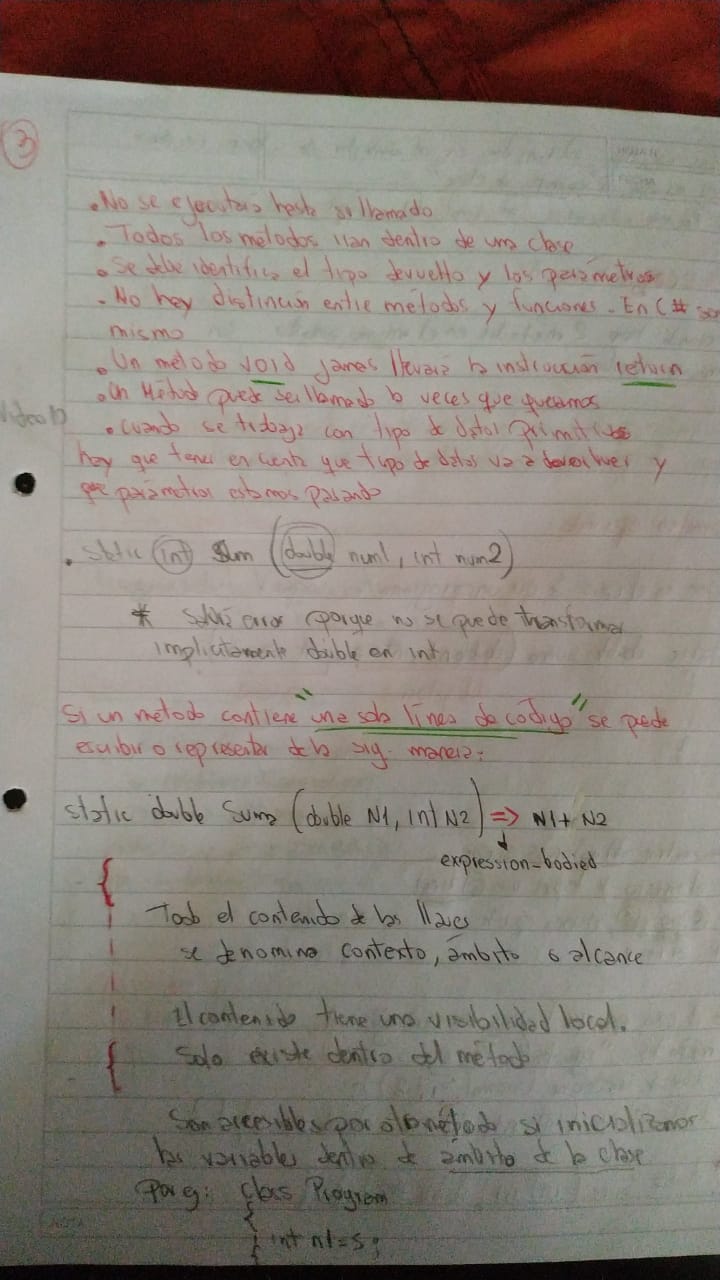 3
• No se ejecutara hasta ser llamado
• Todos los métodos van dentro de una clase
• Se debe identificar el tipo devuelto y los parámetros
• No hay distinción entre métodos y funciones. En C# son
mismo
• Un método void jamas llevará la instrucción return
• Un Método puede ser llamado la veces que queramos
Video 10
• Cuando se trabaja con tipo de datos primitivos
hay que tener en cuenta que tipo de datos va a devolver y
que parámetros estamos pasando
• static int Sum (double num1, int num2)
* Saldrá error porque no se puede transformar
implicitamente double en int
Si un método contiene "una sola línea de código" se puede
escribir o representar de la sig. manera:
static double Suma (double N1, int N2) => N1 + N2
expression-bodied
{
Todo el contenido de las llaves
se denomina contexto, ámbito o alcance
El contenido tiene una visibilidad local.
{ Solo existe dentro del método
Son accesibles por otro método si inicializamos
las variables dentro de ámbito de la clase
Por eg: Class Program
{
{ int n1=5;
NOTA